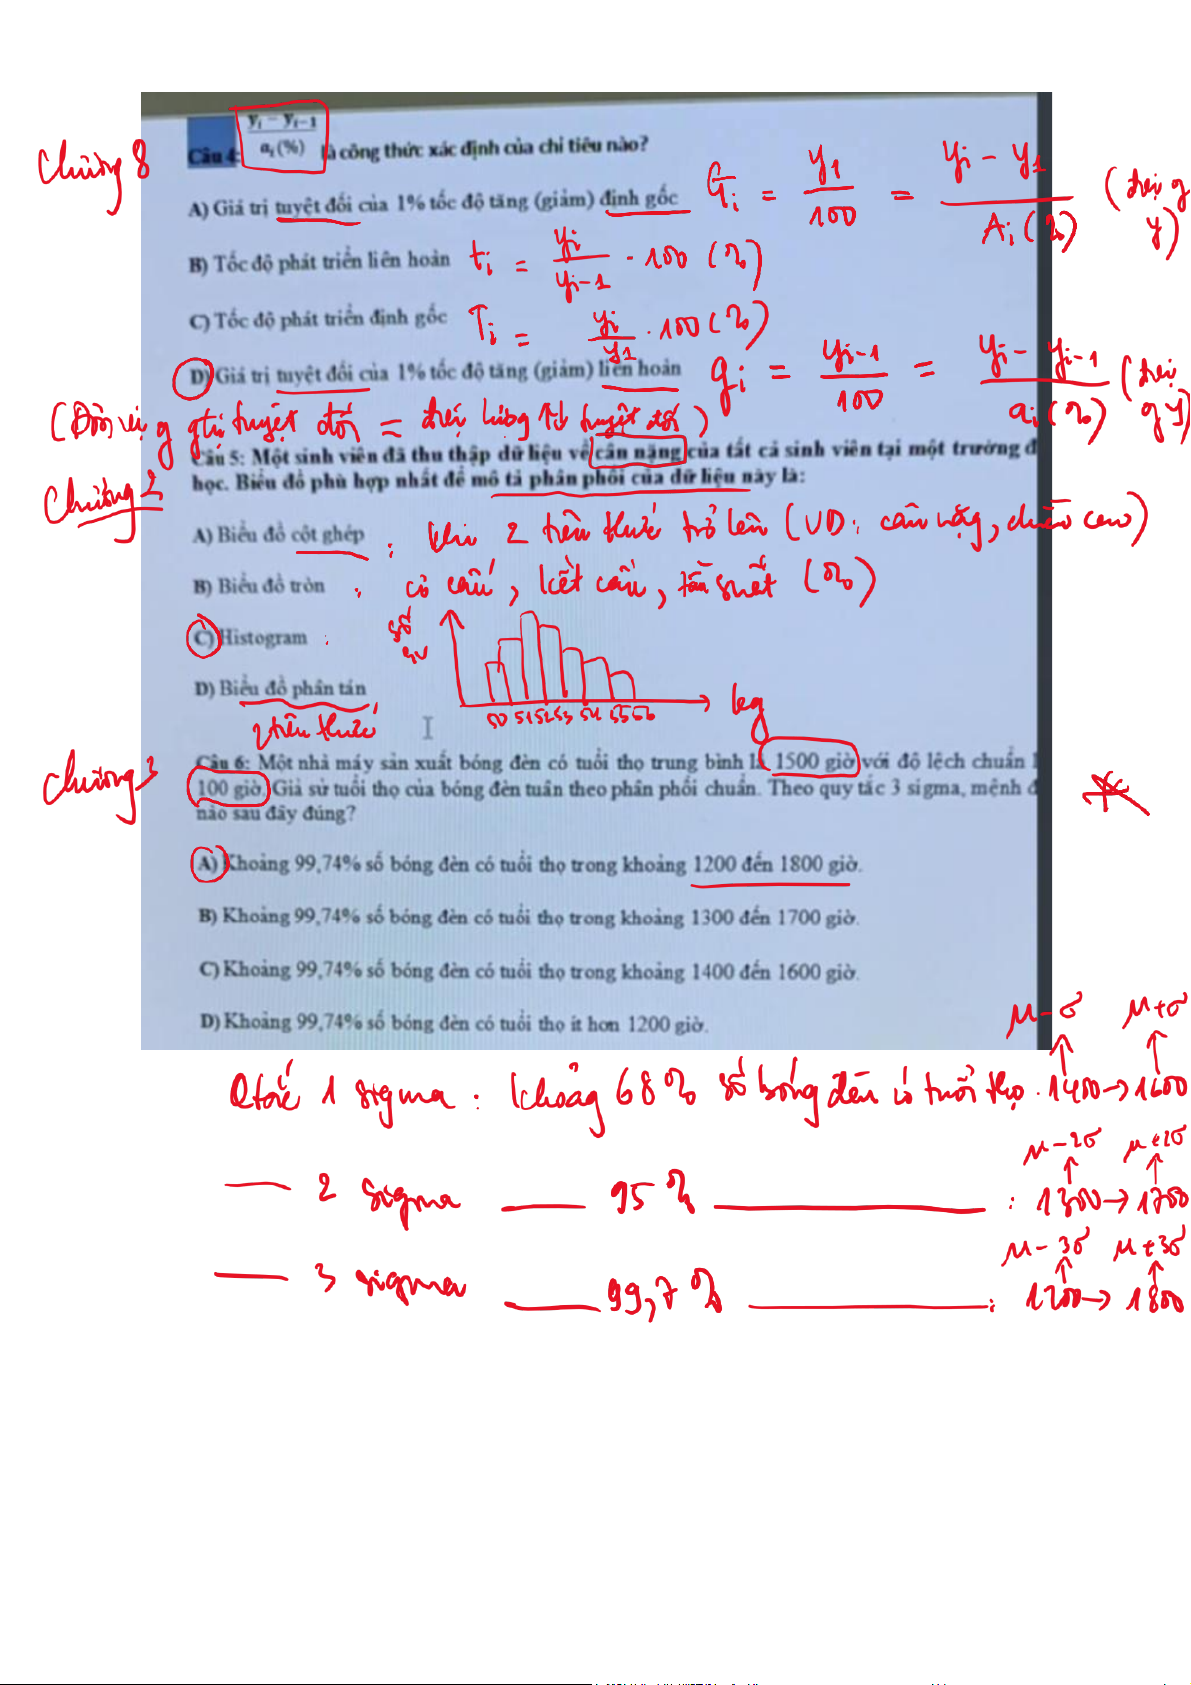 Chương 8
Câu 4: yᵢ − yᵢ₋₁ / aᵢ (%) là công thức xác định của chỉ tiêu nào?
A) Giá trị tuyệt đối của 1% tốc độ tăng (giảm) định gốc Gᵢ = y₁ / 100 = yᵢ − y₁ / Aᵢ (%)
B) Tốc độ phát triển liên hoàn tᵢ = yᵢ / yᵢ₋₁ · 100 (%)
C) Tốc độ phát triển định gốc Tᵢ = yᵢ / y₁ · 100 (%)
D) Giá trị tuyệt đối của 1% tốc độ tăng (giảm) liên hoàn gᵢ = yᵢ₋₁ / 100 = yᵢ − yᵢ₋₁ / aᵢ (%)
Chương 2
Câu 5: Một sinh viên đã thu thập dữ liệu về cân nặng của tất cả sinh viên tại một trường đ
học. Biểu đồ phù hợp nhất để mô tả phân phối của dữ liệu này là:
A) Biểu đồ cột ghép : khi 2 tiêu thức trở lên (VD: cân nặng, chiều cao)
B) Biểu đồ tròn : cơ cấu, kết cấu, tần suất (%)
C) Histogram :
số
sv
50 51 52 53 54 55 56 kg
D) Biểu đồ phân tán
2 tiêu thức
Chương 3
Câu 6: Một nhà máy sản xuất bóng đèn có tuổi thọ trung bình là 1500 giờ với độ lệch chuẩn l
100 giờ. Giả sử tuổi thọ của bóng đèn tuân theo phân phối chuẩn. Theo quy tắc 3 sigma, mệnh đ
nào sau đây đúng?
A) Khoảng 99,74% số bóng đèn có tuổi thọ trong khoảng 1200 đến 1800 giờ.
B) Khoảng 99,74% số bóng đèn có tuổi thọ trong khoảng 1300 đến 1700 giờ.
C) Khoảng 99,74% số bóng đèn có tuổi thọ trong khoảng 1400 đến 1600 giờ.
D) Khoảng 99,74% số bóng đèn có tuổi thọ ít hơn 1200 giờ.
μ − σ μ + σ
Qtắc 1 sigma : khoảg 68% số bóng đèn có tuổi thọ . 1400 → 1600
μ − 2σ μ + 2σ
2 sigma 95% : 1300 → 1700
μ − 3σ μ + 3σ
3 sigma 99,7% : 1200 → 1800